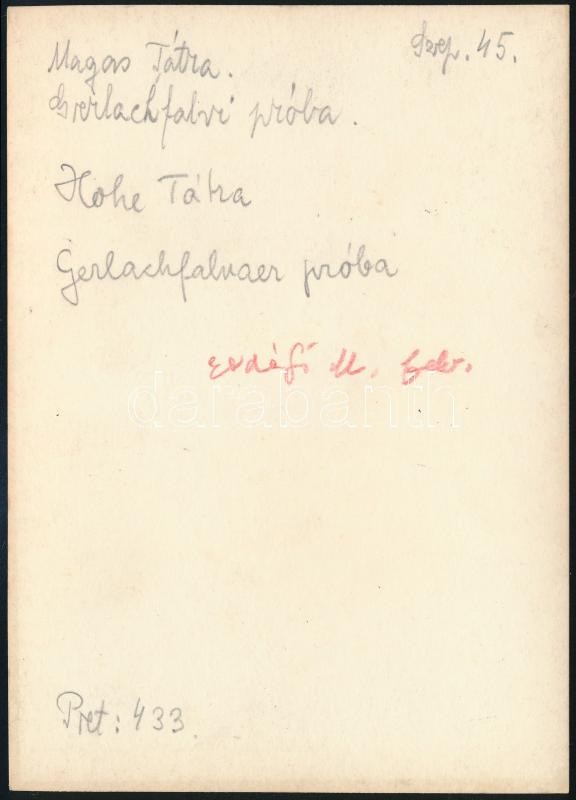 Magas Tátra.
Szep. 45.
Gerlachfalvi próba.
Hohe Tátra
Gerlachfalvaer próba
Erdőfi M. felv.
darabanth
Pret: 433.